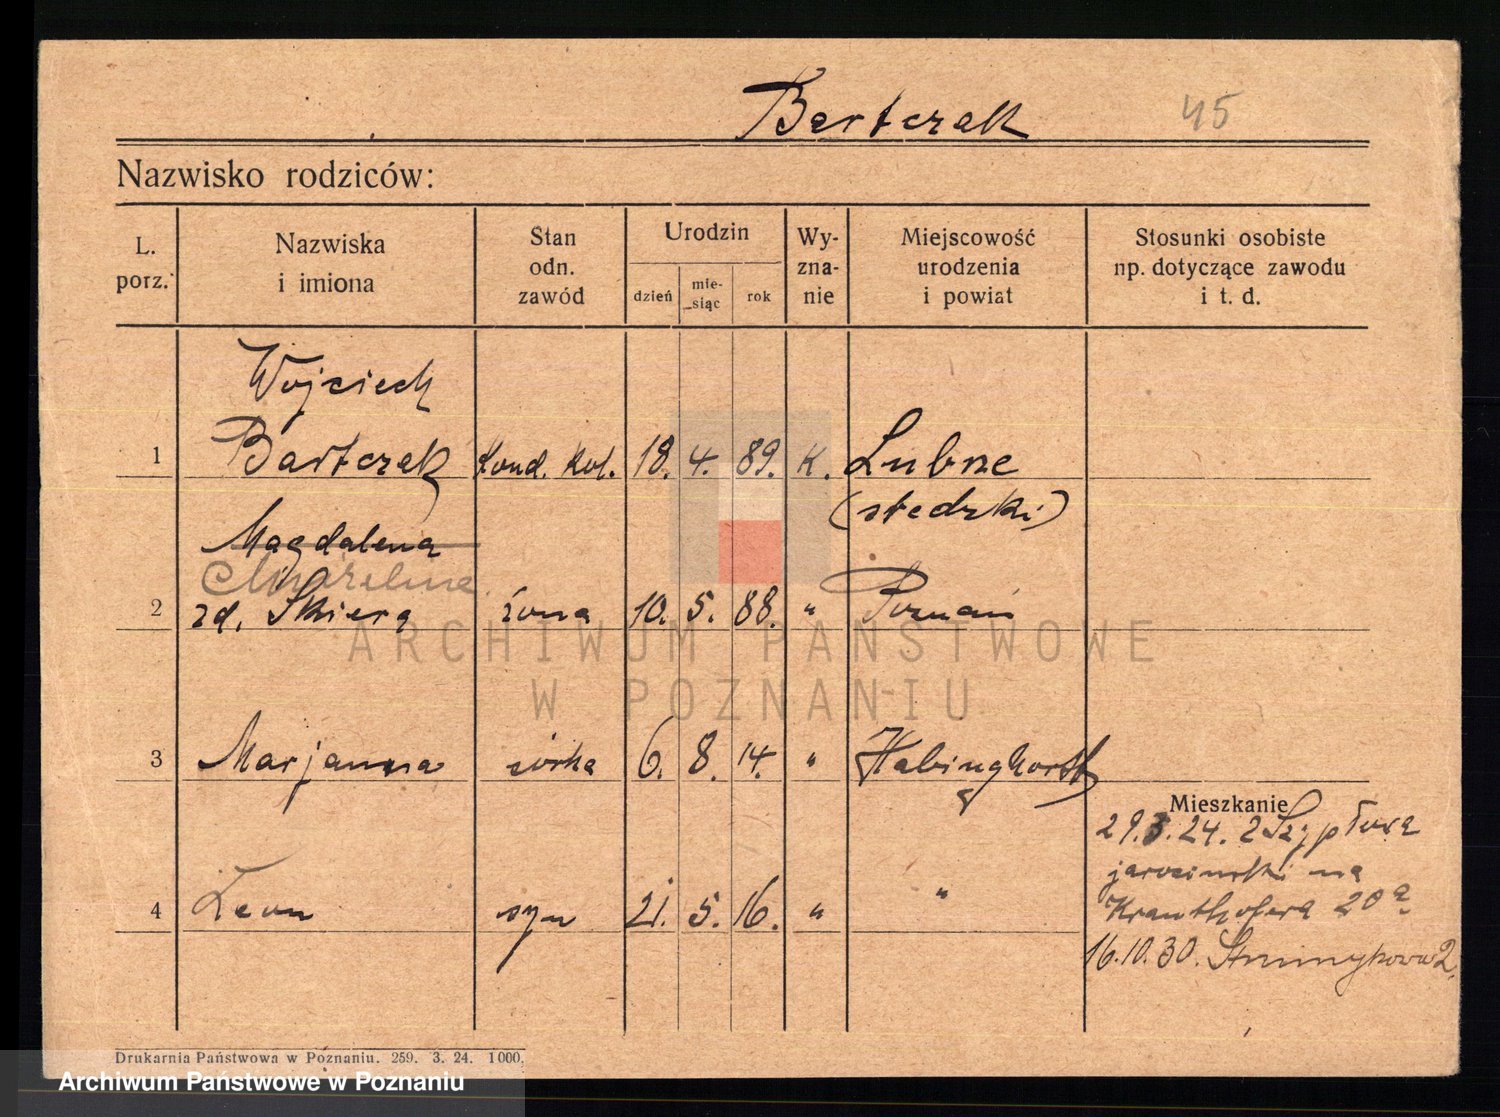 Bartczak 45
Nazwisko rodziców:
L. porz.
Nazwiska i imiona
Stan odn. zawód
Urodzin
dzień
mie-siąc
rok
Wy-zna-nie
Miejscowość urodzenia i powiat
Stosunki osobiste np. dotyczące zawodu i t. d.
Wojciech
1 Bartczak kond. kol. 18. 4. 89. K. Lubne
(śledzki)
Magdalena
2 zd. Skiera żona 10. 5. 88. " Poznań
3 Marjanna córka 6. 8. 14. " Habinghorst
Mieszkanie
29.3.24. z
jarocinski na
4 Leon syn 21. 5. 16. " "
Kranthofera 20a.
16.10.30.
Drukarnia Państwowa w Poznaniu. 259. 3. 24. 1000.
ARCHIWUM PAŃSTWOWE
W POZNANIU
Archiwum Państwowe w Poznaniu